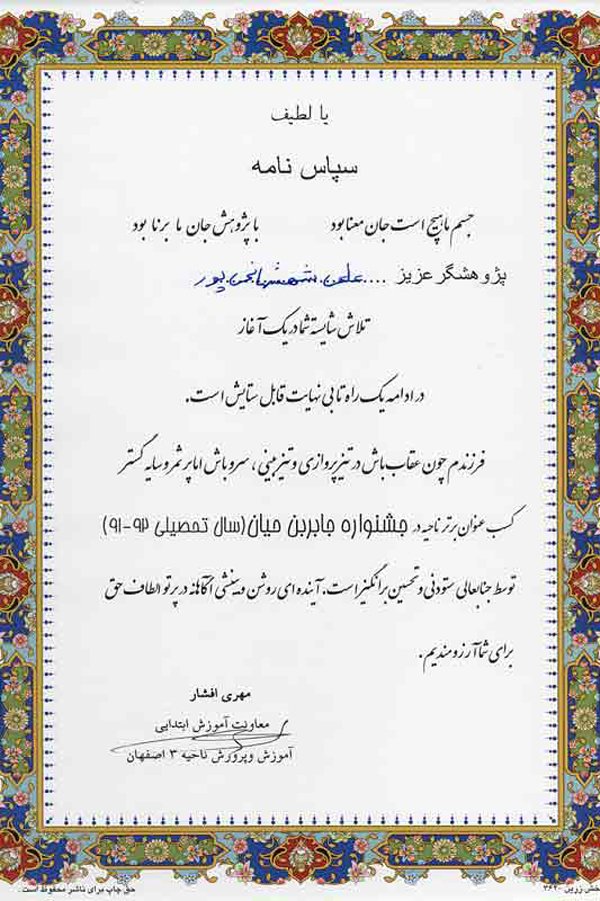 یا لطیف
سپاس نامه
جسم ما هیچ است جان معنا بود با پژوهش جان ما برنا بود
پژوهشگر عزیز ....
تلاش شایسته شما در یک آغاز
در ادامه یک راه تا بی نهایت قابل ستایش است.
فرزندم چون عقاب باش در تیزپروازی و تیزبینی، سرو باش اما پر ثمر و سایه گستر
کسب عنوان برتر ناحیه در جشنواره جابربن حیان (سال تحصیلی ۹۲-۹۱)
توسط جنابعالی ستودنی و تحسین برانگیز است. آینده ای روشن و بینشی آگاهانه در پرتو الطاف حق
برای شما آرزومندیم.
مهری افشار
معاونت آموزش ابتدایی
آموزش وپرورش ناحیه ۳ اصفهان
حق چاپ برای ناشر محفوظ است.